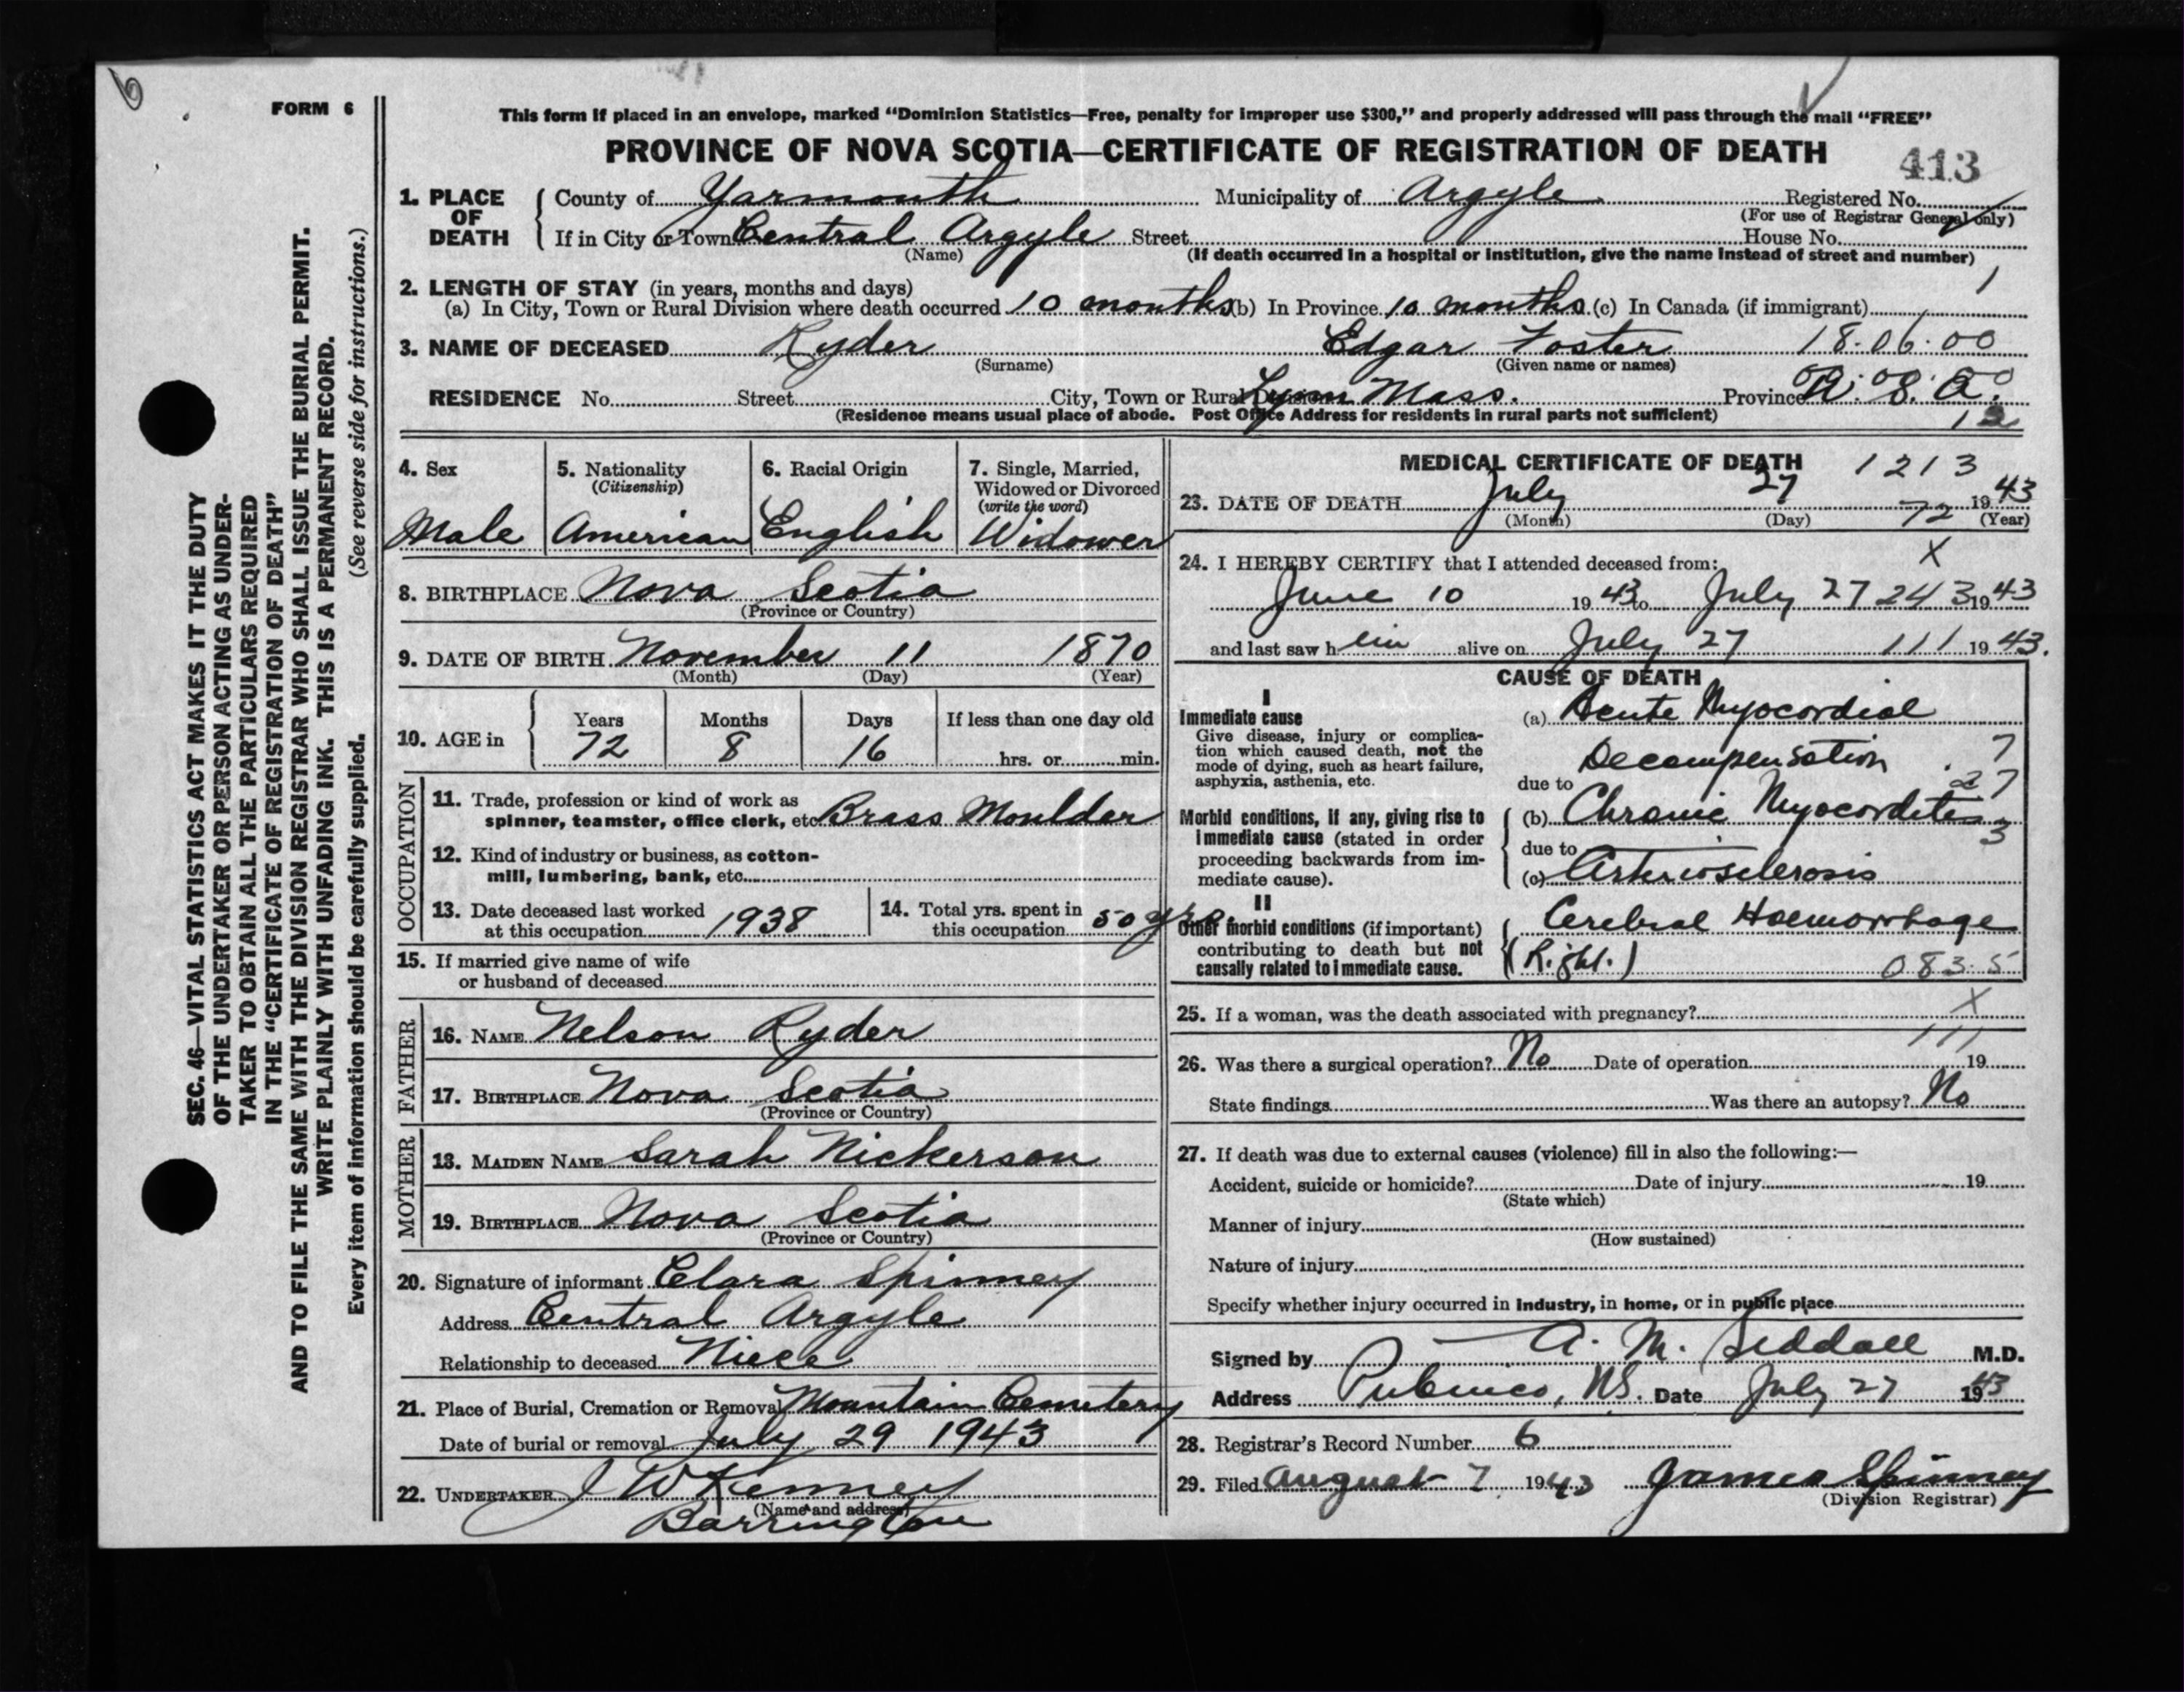 6
FORM 6
This form if placed in an envelope, marked “Dominion Statistics—Free, penalty for improper use $300,” and properly addressed will pass through the mail “FREE”
PROVINCE OF NOVA SCOTIA—CERTIFICATE OF REGISTRATION OF DEATH
413
1. PLACE OF DEATH
County of Yarmouth Municipality of Argyle Registered No.
(For use of Registrar General only)
If in City or Town Central Argyle Street House No.
(Name) (If death occurred in a hospital or institution, give the name instead of street and number)
2. LENGTH OF STAY (in years, months and days) 1
(a) In City, Town or Rural Division where death occurred 10 months (b) In Province 10 months (c) In Canada (if immigrant)
3. NAME OF DECEASED Ryder Edgar Foster 18.06.00
(Surname) (Given name or names)
RESIDENCE No. Street City, Town or Rural Division Lynn Mass. Province U. S. A.
(Residence means usual place of abode. Post Office Address for residents in rural parts not sufficient) 12
4. Sex
Male
5. Nationality
(Citizenship)
American
6. Racial Origin
English
7. Single, Married,
Widowed or Divorced
(write the word)
Widower
8. BIRTHPLACE Nova Scotia
(Province or Country)
9. DATE OF BIRTH November 11 1870
(Month) (Day) (Year)
10. AGE in
Years Months Days If less than one day old
72 8 16 hrs. or min.
OCCUPATION
11. Trade, profession or kind of work as
spinner, teamster, office clerk, etc. Brass Moulder
12. Kind of industry or business, as cotton-
mill, lumbering, bank, etc.
13. Date deceased last worked
at this occupation 1938
14. Total yrs. spent in
this occupation 50 yrs.
15. If married give name of wife
or husband of deceased
FATHER
16. NAME Nelson Ryder
17. BIRTHPLACE Nova Scotia
(Province or Country)
MOTHER
18. MAIDEN NAME Sarah Nickerson
19. BIRTHPLACE Nova Scotia
(Province or Country)
20. Signature of informant Clara Spinney
Address Central Argyle
Relationship to deceased Niece
21. Place of Burial, Cremation or Removal Mountain Cemetery
Date of burial or removal July 29 1943
22. UNDERTAKER J W Kenney
(Name and address)
Barrington
MEDICAL CERTIFICATE OF DEATH 1213
23. DATE OF DEATH July 27 1943
(Month) (Day) 72 (Year)
24. I HEREBY CERTIFY that I attended deceased from: X
June 10 1943 to July 27 243 1943
and last saw him alive on July 27 111 1943.
CAUSE OF DEATH
I
Immediate cause
Give disease, injury or complica-
tion which caused death, not the
mode of dying, such as heart failure,
asphyxia, asthenia, etc.
(a) Acute Myocordial
Decompensation 7
due to 27
Morbid conditions, if any, giving rise to
immediate cause (stated in order
proceeding backwards from im-
mediate cause).
(b) Chronic Myocordites 3
due to
(c) Arteriosclerosis
II
Other morbid conditions (if important)
contributing to death but not
causally related to immediate cause.
Cerebral Haemorrhage
(Right.) 083.5
25. If a woman, was the death associated with pregnancy? X
111
26. Was there a surgical operation? No Date of operation 19
State findings Was there an autopsy? No
27. If death was due to external causes (violence) fill in also the following:—
Accident, suicide or homicide? Date of injury 19
(State which)
Manner of injury
(How sustained)
Nature of injury
Specify whether injury occurred in industry, in home, or in public place
Signed by A. M. Siddall M.D.
Address Pubnico, NS. Date July 27 1943
28. Registrar's Record Number 6
29. Filed August 7 1943 James Spinney
(Division Registrar)
SEC. 46—VITAL STATISTICS ACT MAKES IT THE DUTY
OF THE UNDERTAKER OR PERSON ACTING AS UNDER-
TAKER TO OBTAIN ALL THE PARTICULARS REQUIRED
IN THE “CERTIFICATE OF REGISTRATION OF DEATH”
AND TO FILE THE SAME WITH THE DIVISION REGISTRAR WHO SHALL ISSUE THE BURIAL PERMIT.
WRITE PLAINLY WITH UNFADING INK. THIS IS A PERMANENT RECORD.
Every item of information should be carefully supplied. (See reverse side for instructions.)